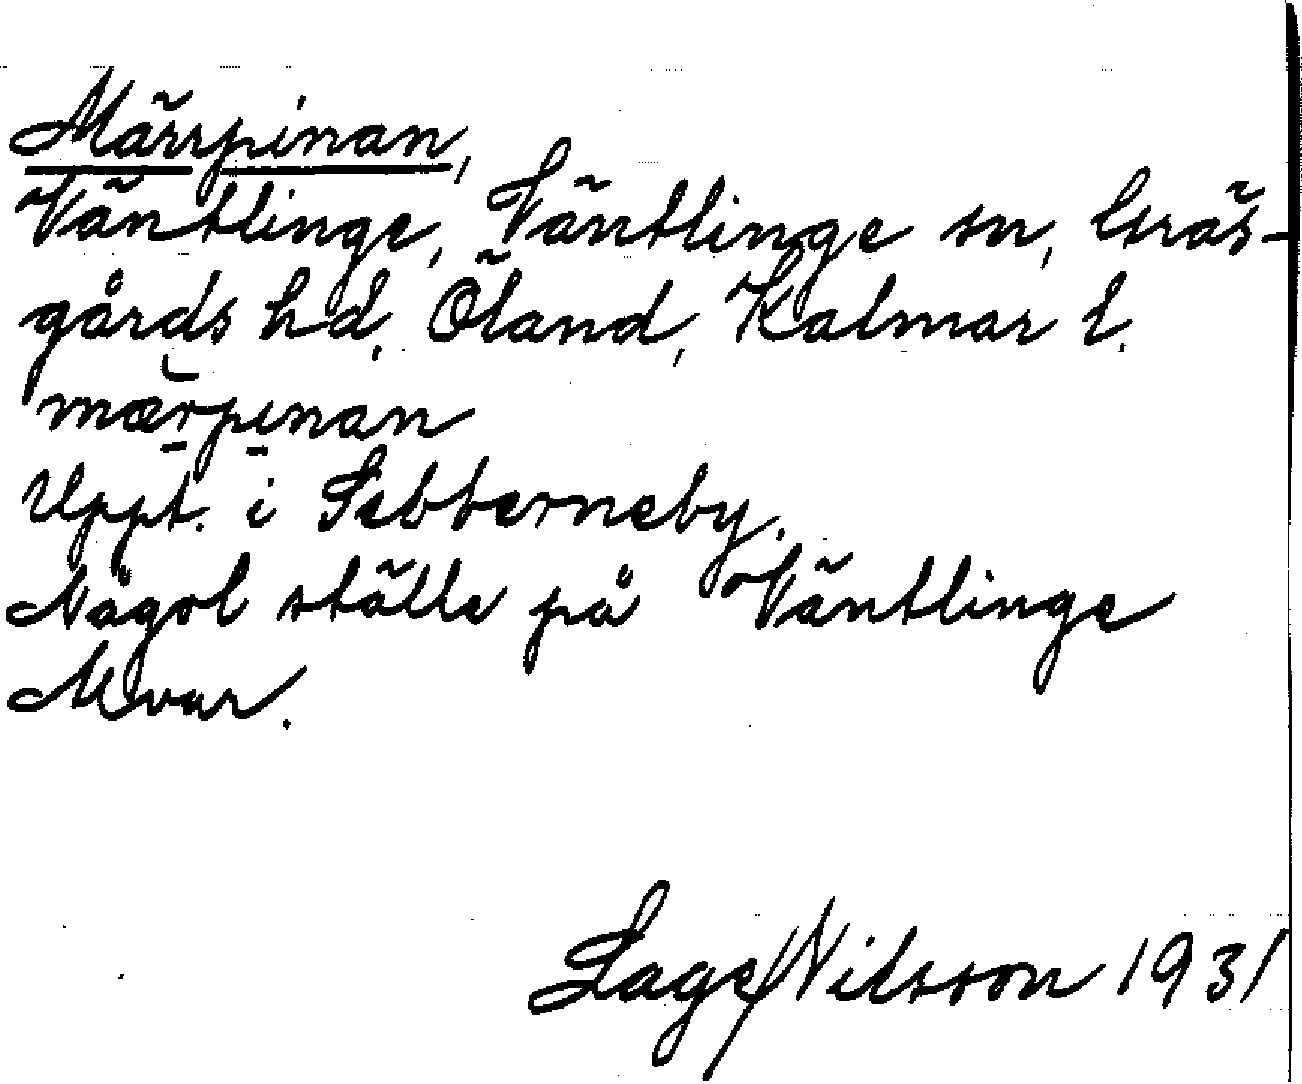 Märrpinan,
Väntlinge, Väntlinge sn, Gräs-
gårds hd, Öland, Kalmar l.
mærpinan
Uppt. i Sebberneby.
Någol ställe på Väntlinge
Mvar.
Lage Nilsson 1931